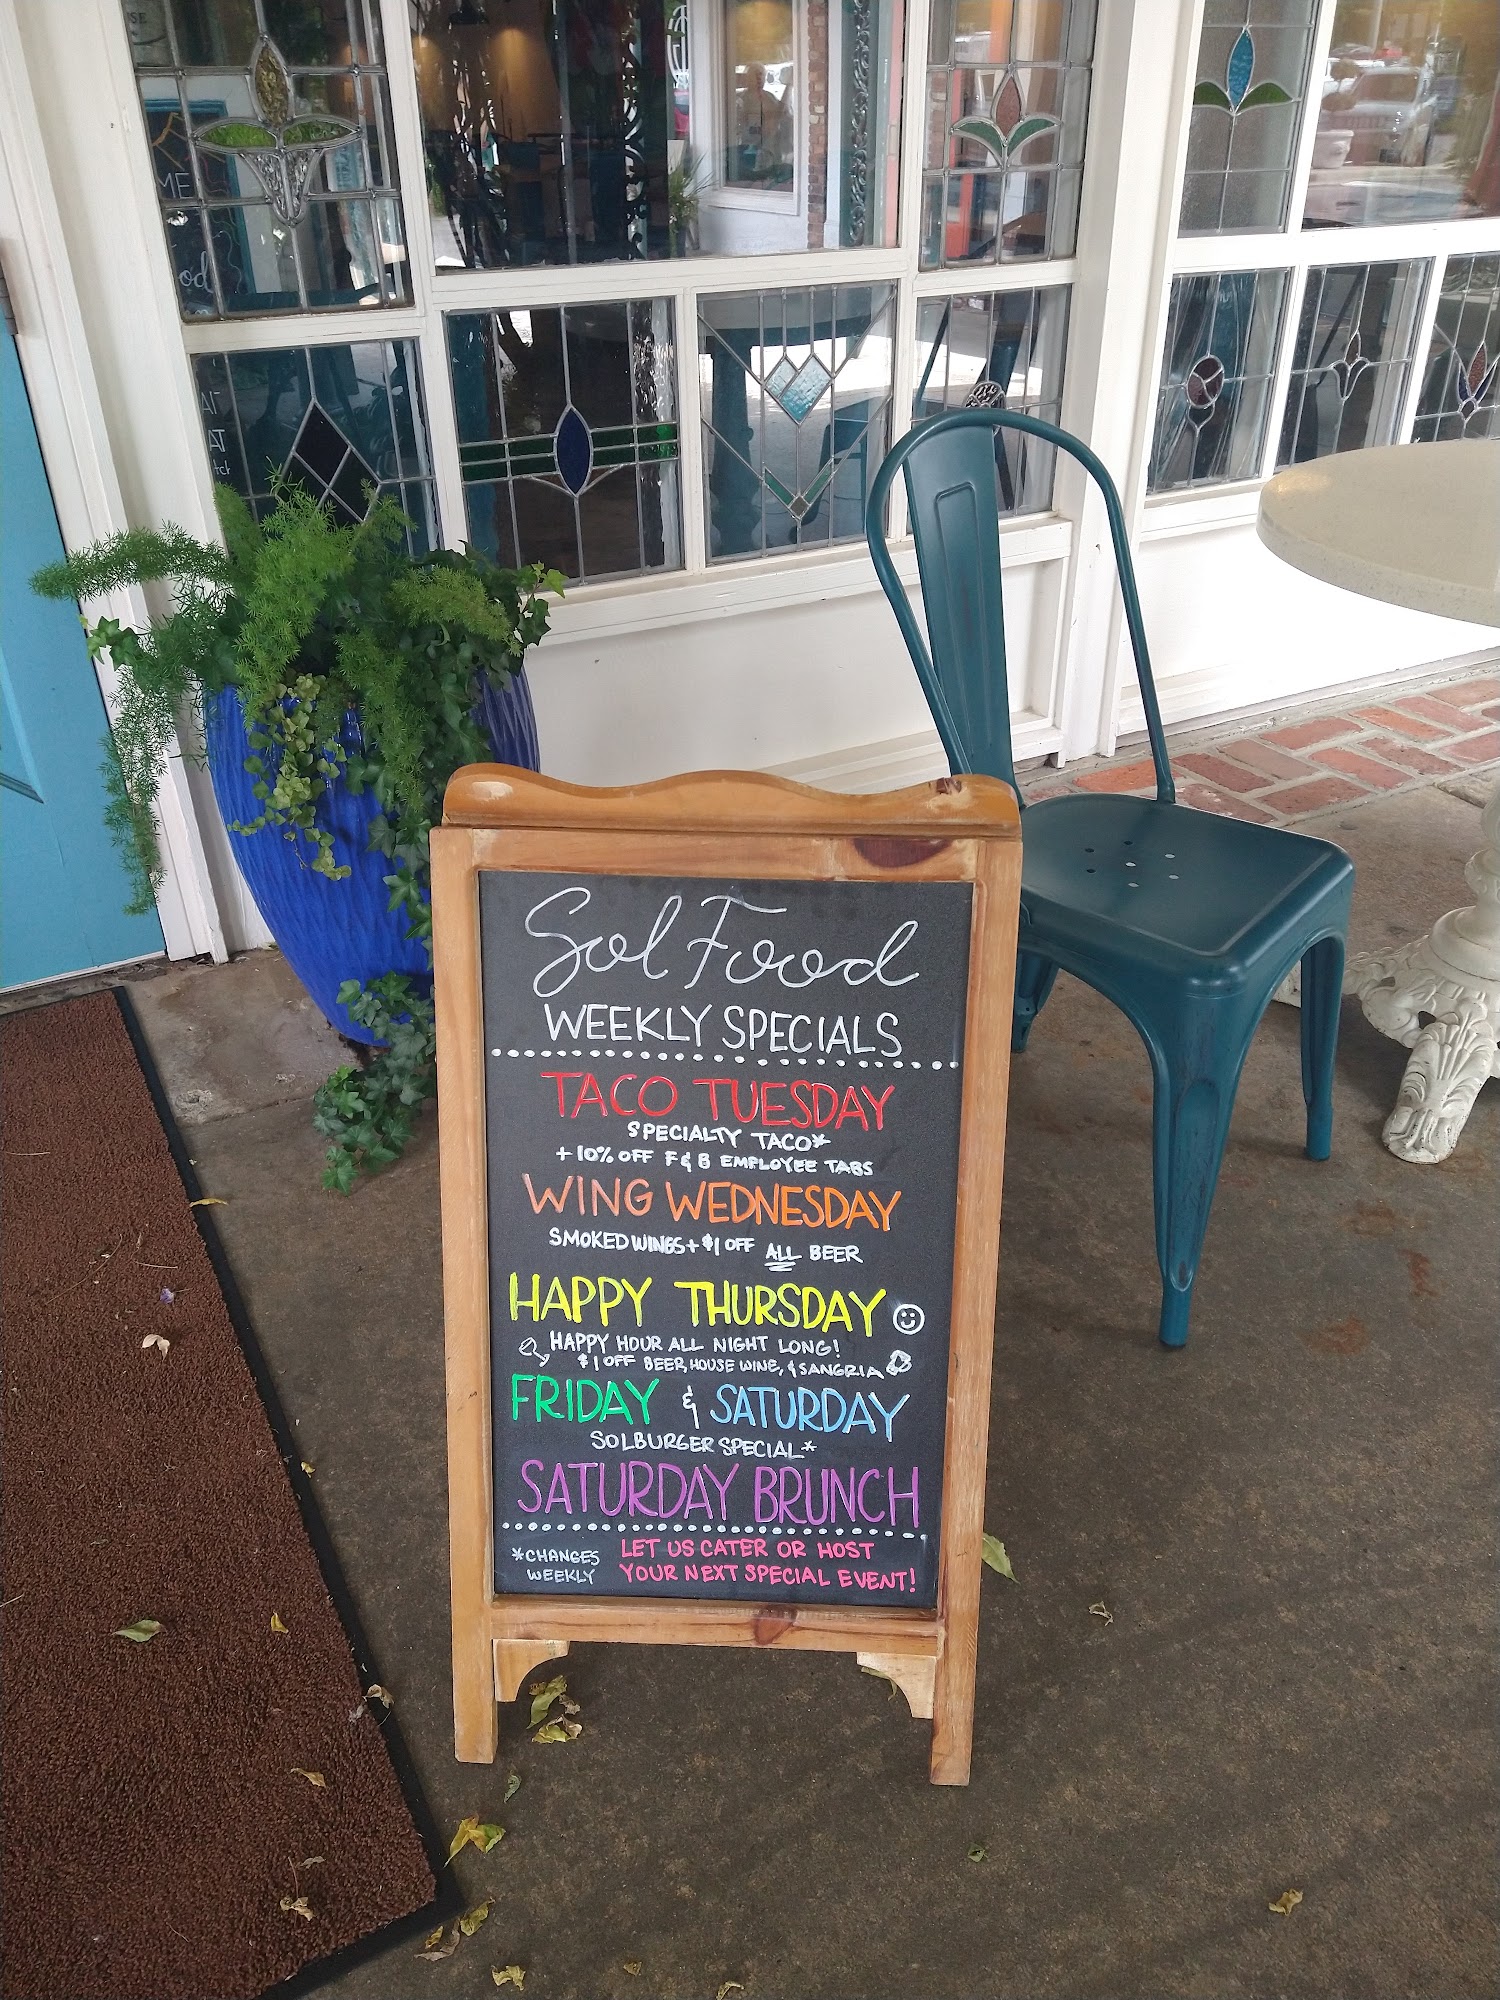 Sol Food
WEEKLY SPECIALS
TACO TUESDAY
SPECIALTY TACO*
+ 10% OFF F & B EMPLOYEE TABS
WING WEDNESDAY
SMOKED WINGS + $1 OFF ALL BEER
HAPPY THURSDAY
HAPPY HOUR ALL NIGHT LONG!
$1 OFF BEER, HOUSE WINE, & SANGRIA
FRIDAY & SATURDAY
SOLBURGER SPECIAL*
SATURDAY BRUNCH
*CHANGES
WEEKLY
LET US CATER OR HOST
YOUR NEXT SPECIAL EVENT!